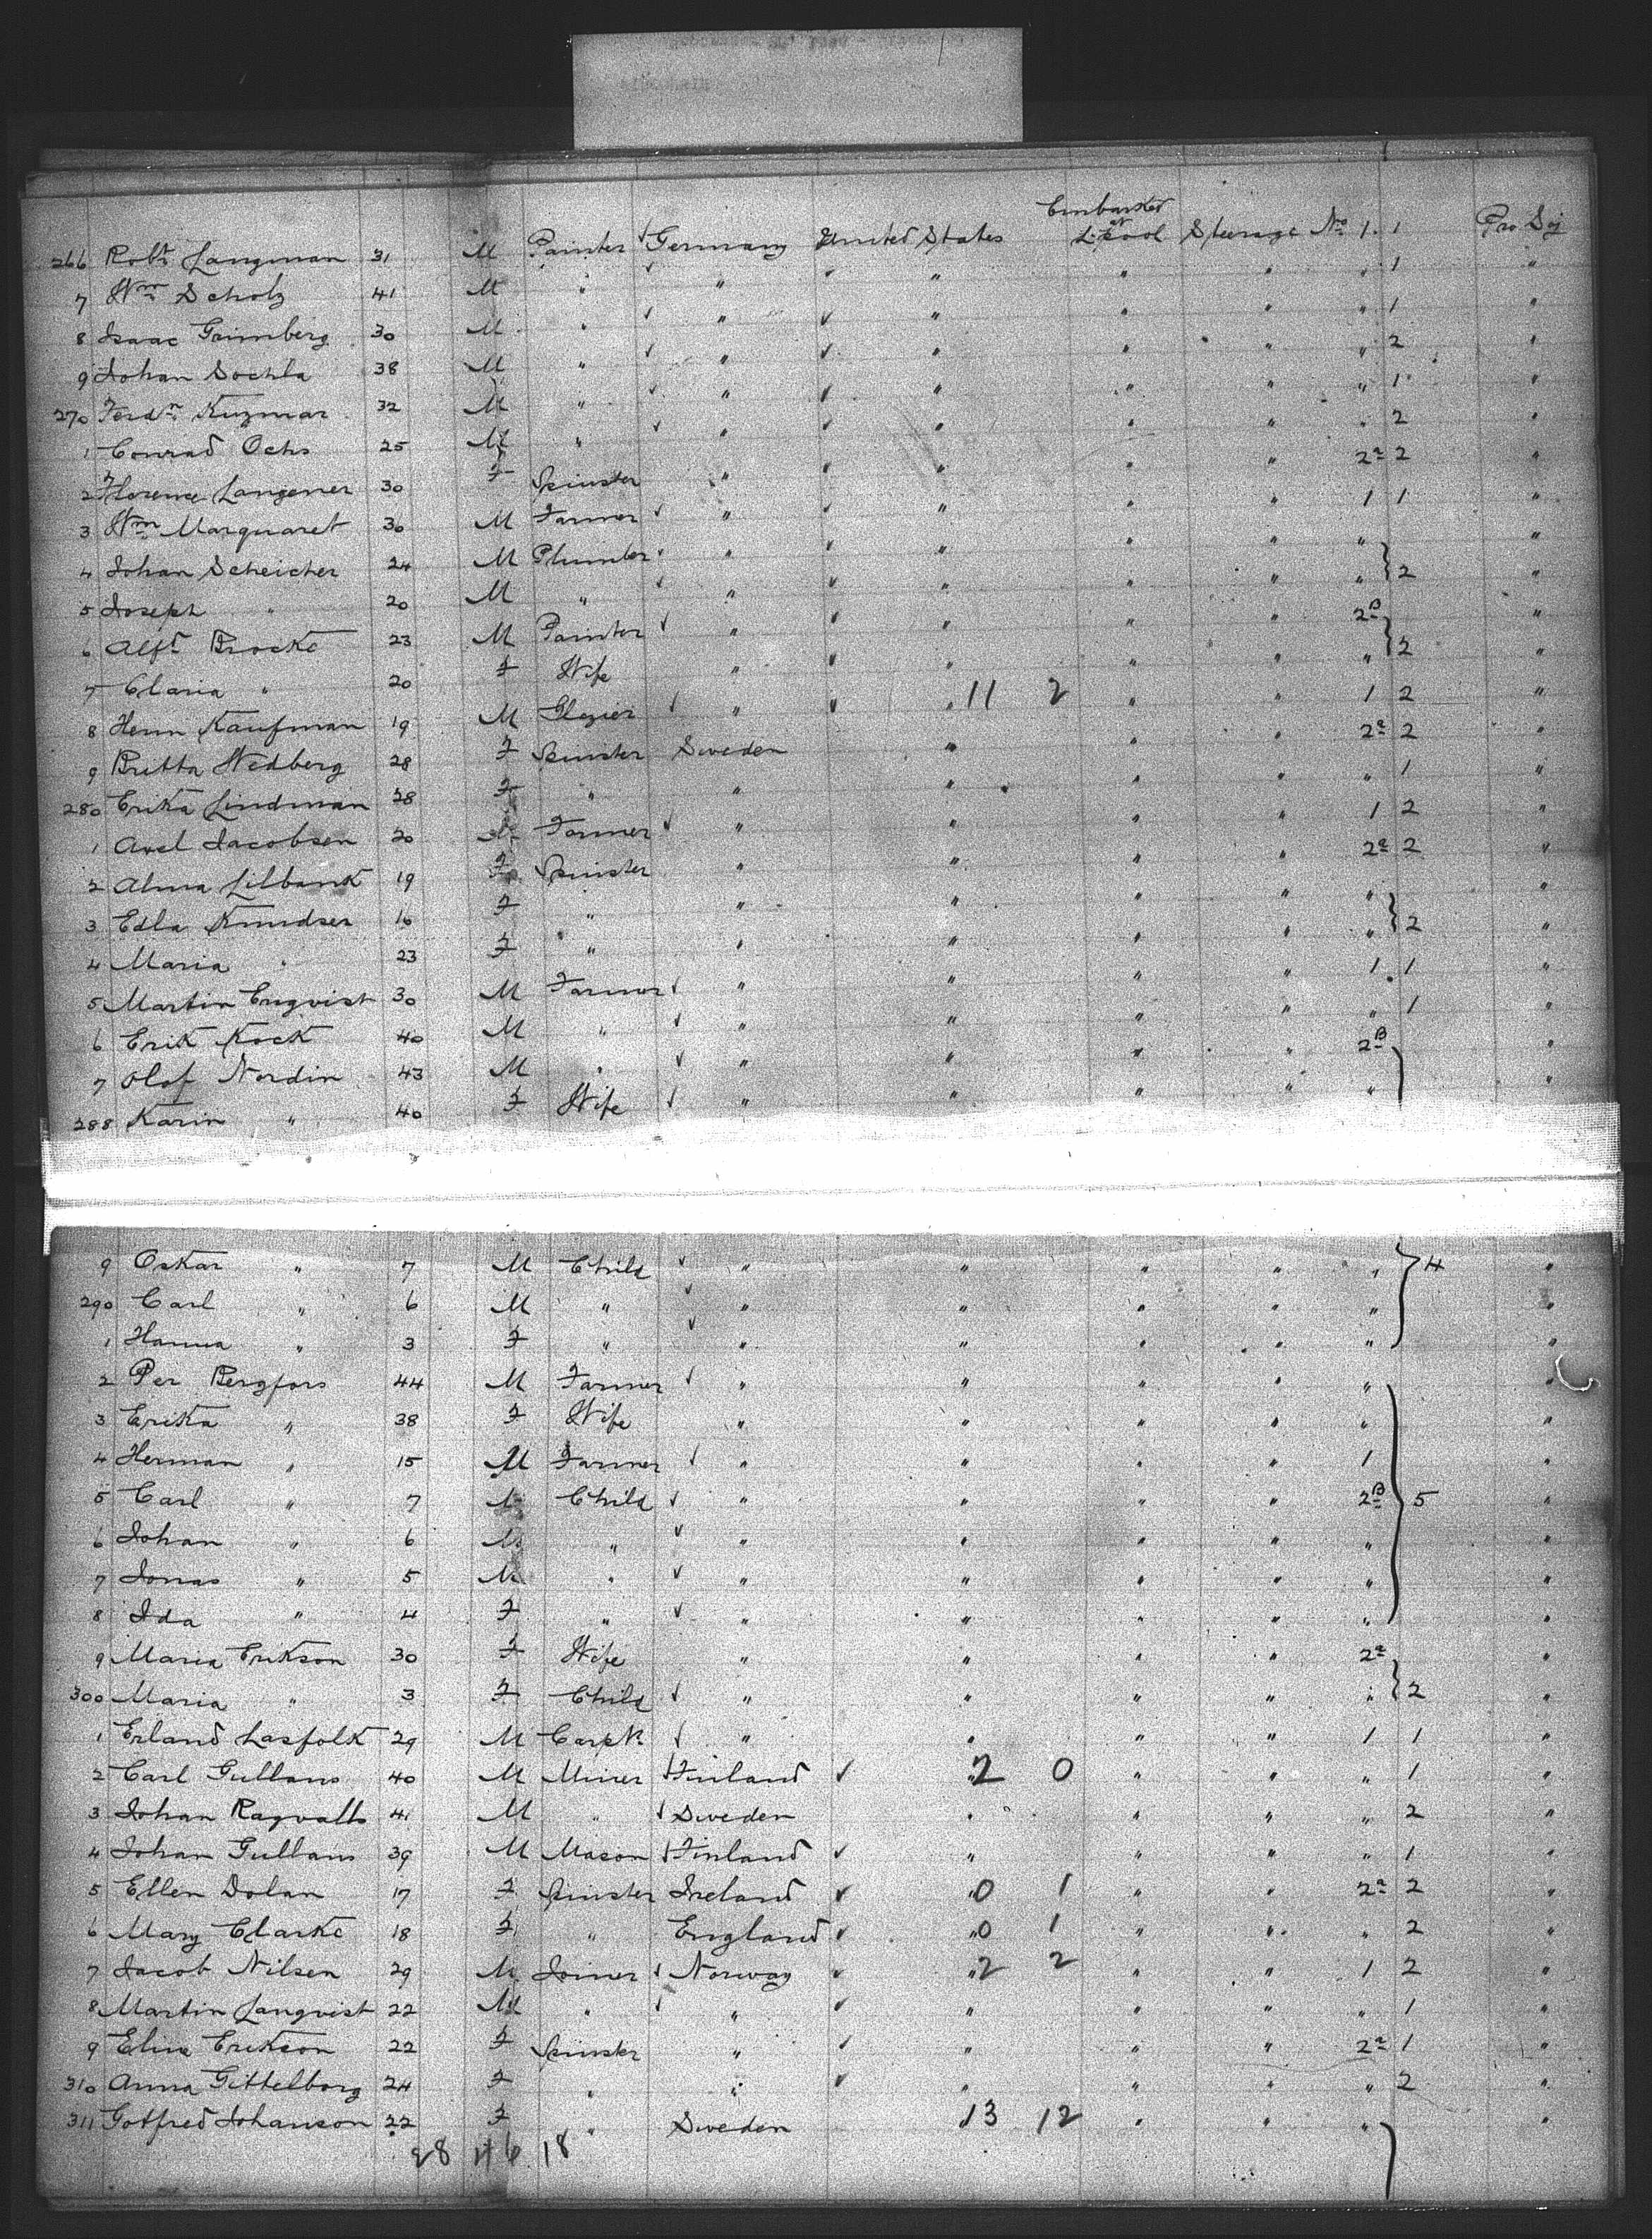 Embarked
266 Robt Langman 31 M Painter Germany United States at L'pool Steerage No 1. 1 Pro Soj
7 Wm Scholz 41 M " " " " " " 1 "
8 Isaac Grimberg 30 M " " " " " " 1 "
9 Johan Sochla 38 M " " " " " " 2 "
270 Ferdn Kuzmar 32 M " " " " " " 1 "
1 Conrad Ochs 25 M " " " " " " 2 "
2 Florence Langener 30 F Spinster " " " " 2a 2 "
3 Wm Marquaret 30 M Farmer " " " " 1 1 "
4 Johan Scheicher 24 M Plumber " " " " " "
5 Joseph " 20 M " " " " " " 2 "
6 Alfd Brocke 23 M Painter " " " " 2B "
7 Claria " 20 F Wife " " " " " 2 "
8 Herm Kaufman 19 M Glazier " " 11 2 " " 1 2 "
9 Britta Wedberg 28 F Spinster Sweden " " " 2a 2 "
280 Erika Lindman 28 F " " " " " " 1 "
1 Axel Jacobsen 20 M Farmer " " " " 1 2 "
2 Alma Lilbank 19 F Spinster " " " " 2a 2 "
3 Edla Knudsen 16 F " " " " " " "
4 Maria " 23 F " " " " " " 2 "
5 Martin Engvist 30 M Farmer " " " " 1 1 "
6 Erik Kock 40 M " " " " " " 1 "
7 Olof Nordin 43 M " " " " " 2B "
288 Karin " 40 F Wife " " " " " "
9 Oskar " 7 M Child " " " " " 4 "
290 Carl " 6 M " " " " " " "
1 Hanna " 3 F " " " " " " "
2 Per Bergfors 44 M Farmer " " " " " "
3 Erika " 38 F Wife " " " " " "
4 Herman " 15 M Farmer " " " " 1 "
5 Carl " 7 M Child " " " " 2B 5 "
6 Johan " 6 M " " " " " " "
7 Jonas " 5 M " " " " " " "
8 Ida " 4 F " " " " " " "
9 Maria Erikson 30 F Wife " " " " 2a "
300 Maria " 3 F Child " " " " " 2 "
1 Erland Lasfolk 29 M Carpr " " " " 1 1 "
2 Carl Gullans 40 M Miner Finland " 2 0 " " " 1 "
3 Johan Ragvalls 41 M " Sweden " " " " 2 "
4 Johan Gullans 39 M Mason Finland " " " " 1 "
5 Ellen Dolan 17 F Spinster Ireland " 0 1 " " 2a 2 "
6 Mary Clarke 18 F " England " 0 1 " " " 2 "
7 Jacob Nilsen 29 M Joiner Norway " 2 2 " " 1 2 "
8 Martin Langvist 22 M " " " " " " 1 "
9 Elina Erikson 22 F Spinster " " " " 2a 1 "
310 Anna Gittelborg 24 F " " " " " " 2 "
311 Gotfred Johanson 22 F " Sweden " 13 12 " " " "
28 46 18